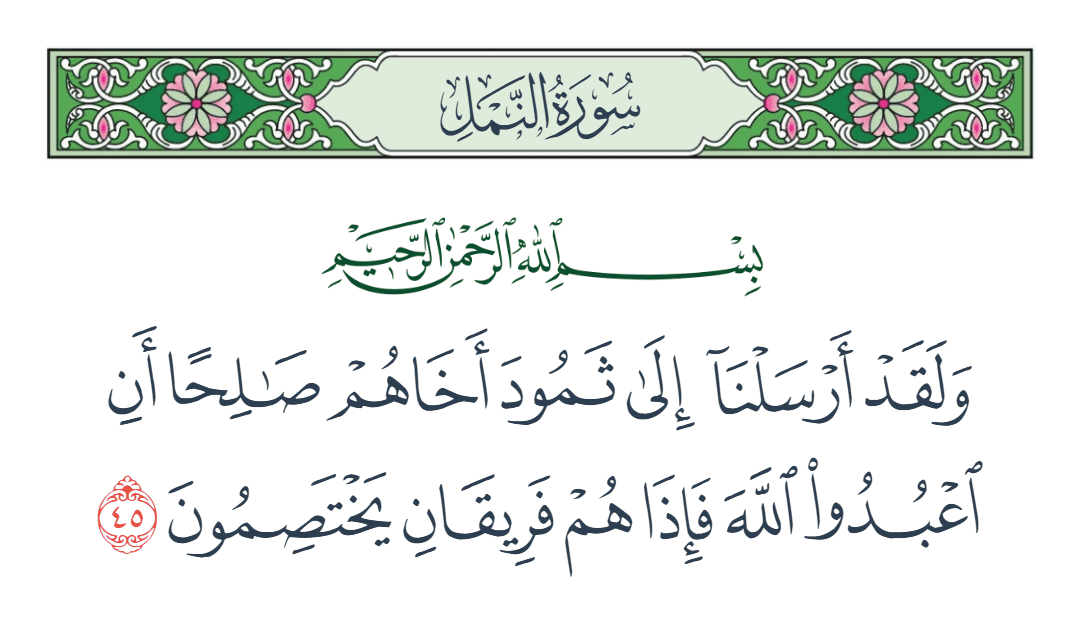 سُورَةُ النَّمْلِ
بِسْمِ ٱللَّهِ ٱلرَّحْمَٰنِ ٱلرَّحِيمِ
وَلَقَدْ أَرْسَلْنَآ إِلَىٰ ثَمُودَ أَخَاهُمْ صَـٰلِحًا أَنِ
ٱعْبُدُوا۟ ٱللَّهَ فَإِذَا هُمْ فَرِيقَانِ يَخْتَصِمُونَ ٤٥